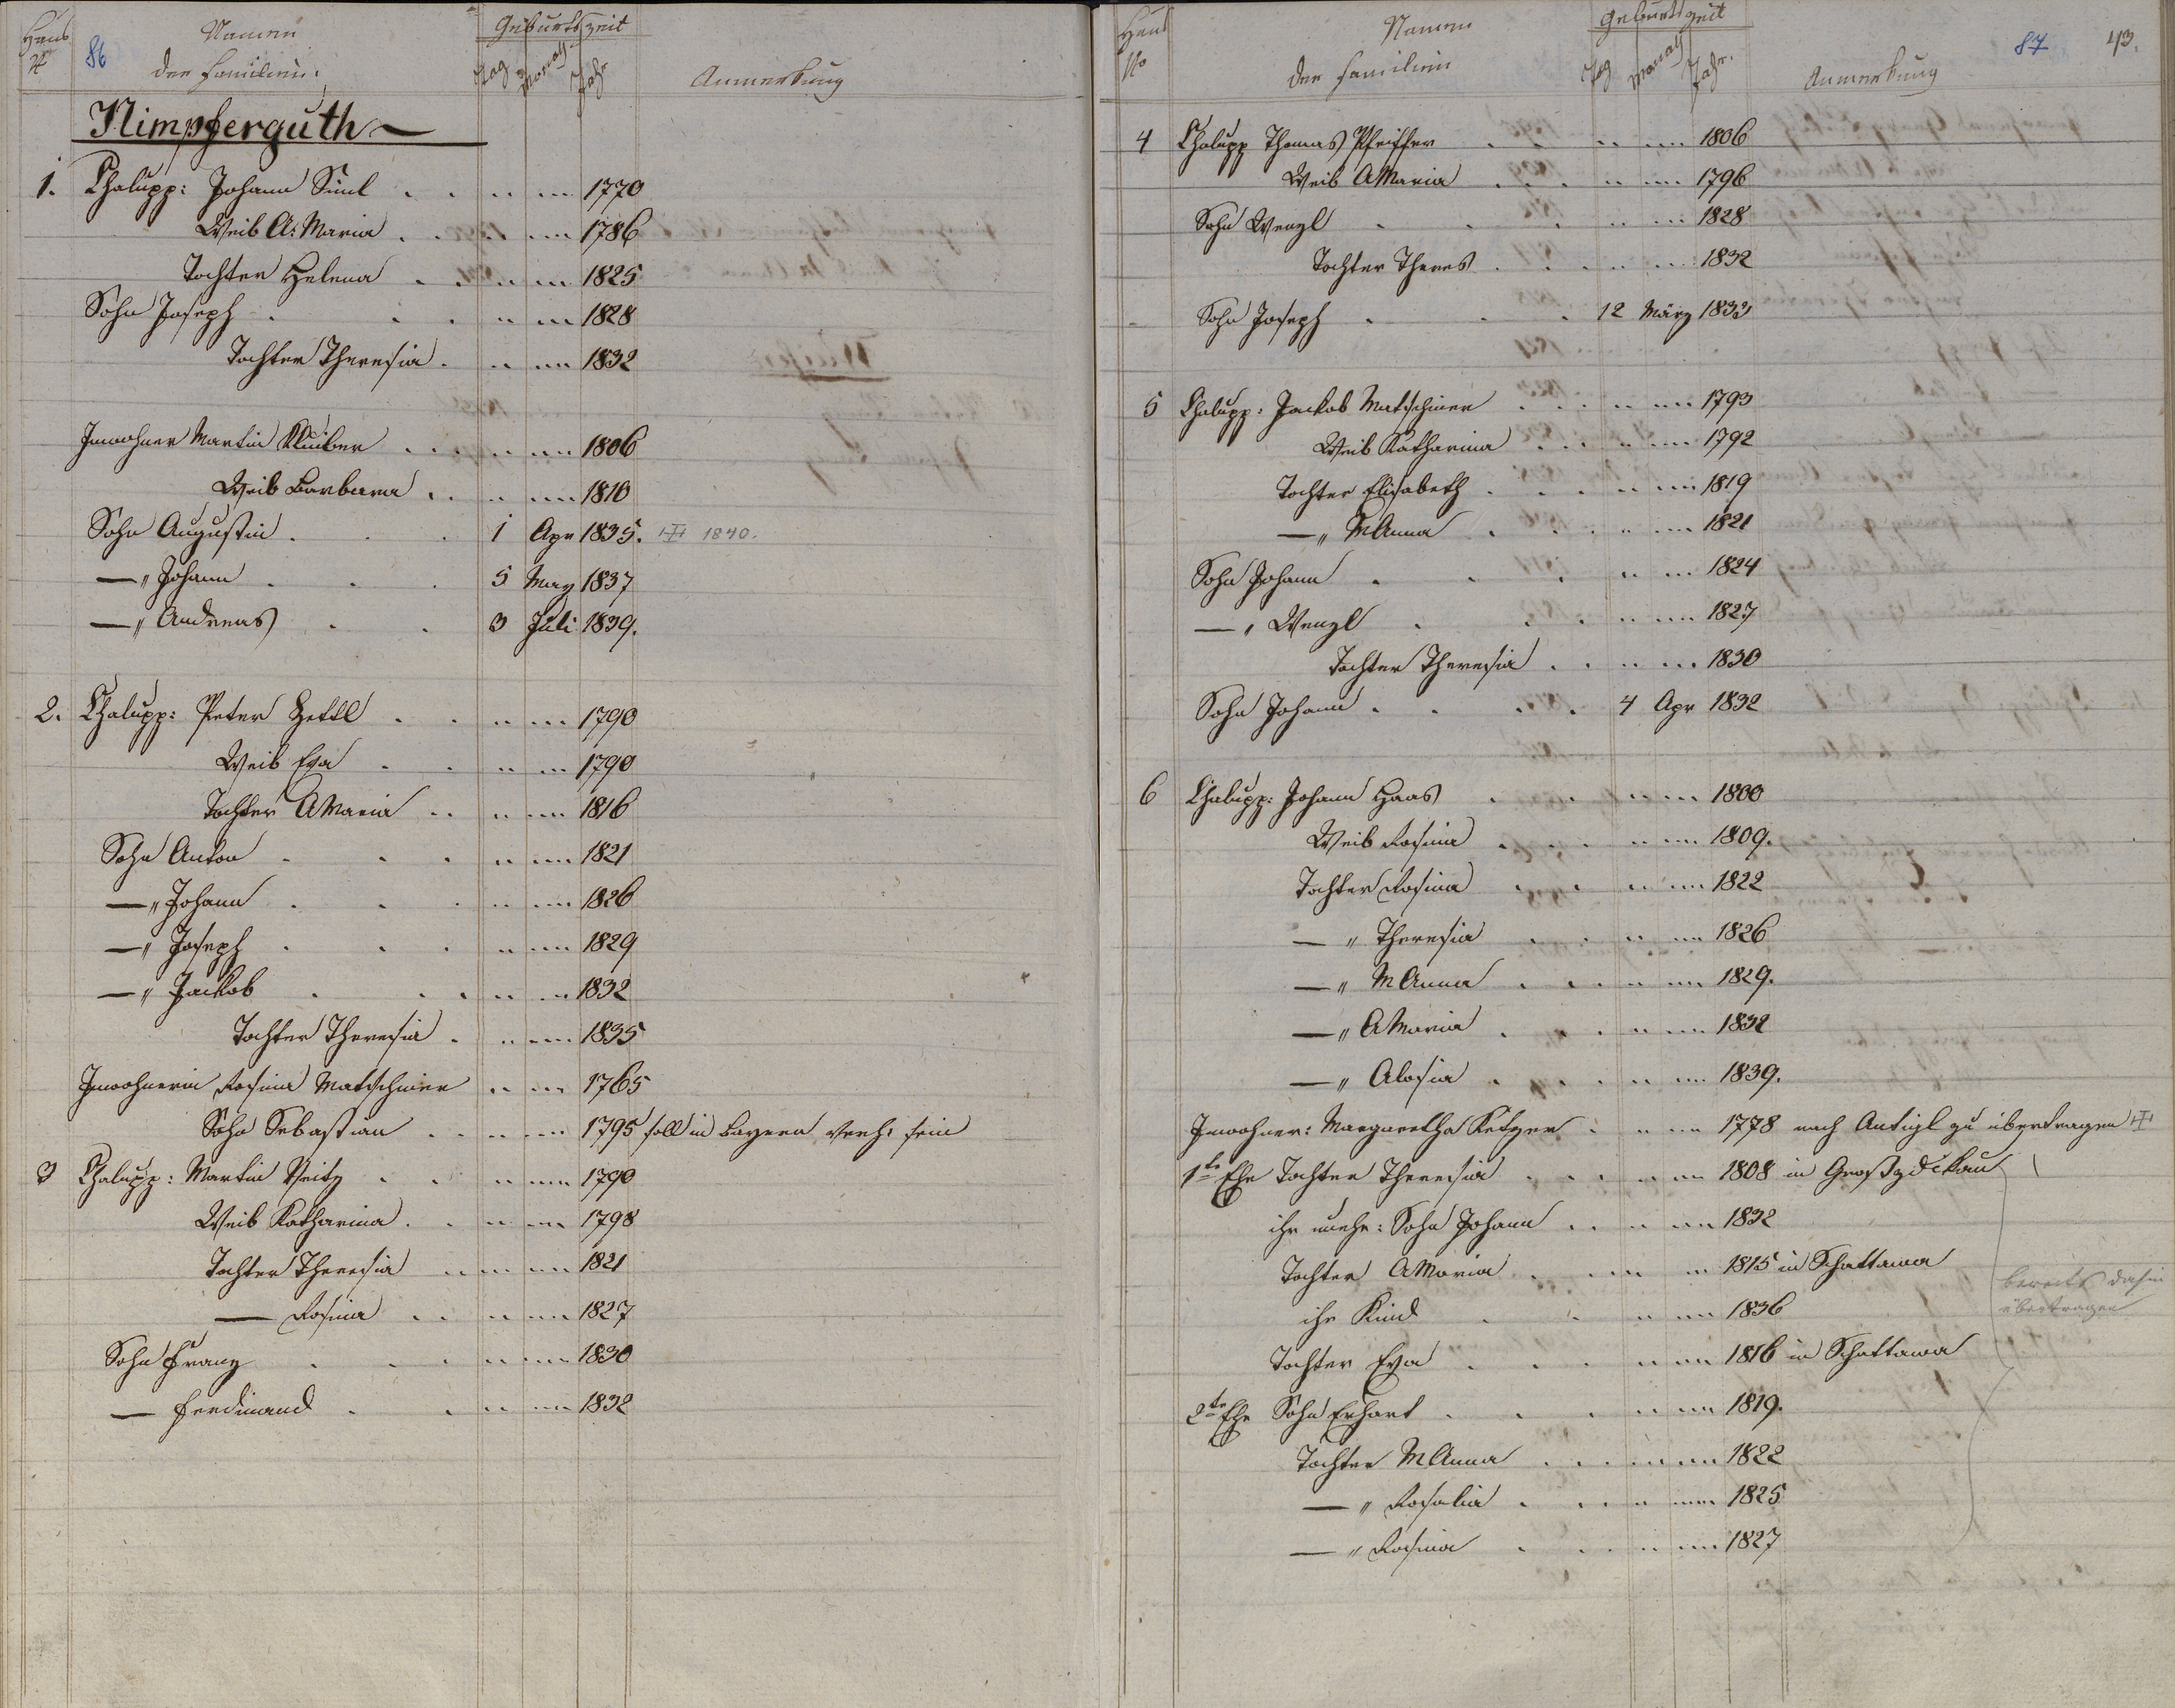 Haus
N°
86
Namen
der Familien
Geburtszeit
Tag
Monath
Jahr
Anmerkung
Nimpferguth
1. Chalupp: Johann Siml . . 1770
Weib A: Maria . . 1786
Tochter Helena . . 1825
Sohn Joseph . . . 1828
Tochter Theresia . 1832
Inwohner Martin Kluiber . . . 1806
Weib Barbara . . 1810
Sohn Augustin . . . 1 Apr 1835. 1840.
—„ Johann . . . 5 May 1837
—„ Andreas . . 3 Juli 1839.
2. Chalupp: Peter Zettl . . 1790
Weib Eva . . 1790
Tochter AMaria . . 1816
Sohn Anton . . . 1821
—„ Johann . . . 1826
—„ Joseph . . . 1829
—„ Jackob . . . 1832
Tochter Theresia . 1835
Inwohnerin Rosina Matschiner 1765
Sohn Sebastian . . 1795 soll in Bayern verh: sein
3 Chalupp: Martin Veitz . . 1790
Weib Katharina . . 1798
Tochter Theresia . . 1821
— Rosina . . 1827
Sohn Franz . . . 1830
— Ferdinand . . 1832
Haus
No
Namen
der Familien
Geburtszeit
Tag
Monath
Jahr.
Anmerkung
87
43.
4 Chalupp Thomas Pfeiffer . . 1806
Weib AMaria . . . 1796
Sohn Wenzl . . . 1828
Tochter Theres . . . 1832
Sohn Joseph . . . 12 März 1833
5 Chalupp: Jackob Matschiner . . . 1793
Weib Katharina . . . 1792
Tochter Elisabeth . . . 1819
—„ MAnna . . . 1821
Sohn Johann . . . 1824
—„ Wenzl . . . 1827
Tochter Theresia . . 1830
Sohn Johann . . . . 4 Apr 1832
6 Chalupp: Johann Haas . . . 1800
Weib Rosina . . . 1809.
Tochter Rosina . . . 1822
—„ Theresia . . . 1826
—„ MAnna . . . 1829.
—„ AMaria . . . 1832
—„ Alosia . . . 1839.
Inwohner: Margaretha Ketzer . 1778 nach Antigl zu übertragen
1te Ehe Tochter Theresia . . . 1808 in Großzdikau
ihr unehe: Sohn Johann . . 1832
Tochter AMaria . . 1815 in Schattawa
bereits dahin
übertragen
ihr Kind . . 1836
Tochter Eva . . . 1816 in Schattawa
2te Ehe Sohn Erhart . . . 1819.
Tochter MAnna . . . 1822
—„ Rosalia . . . 1825
—„ Rosina . . . 1827